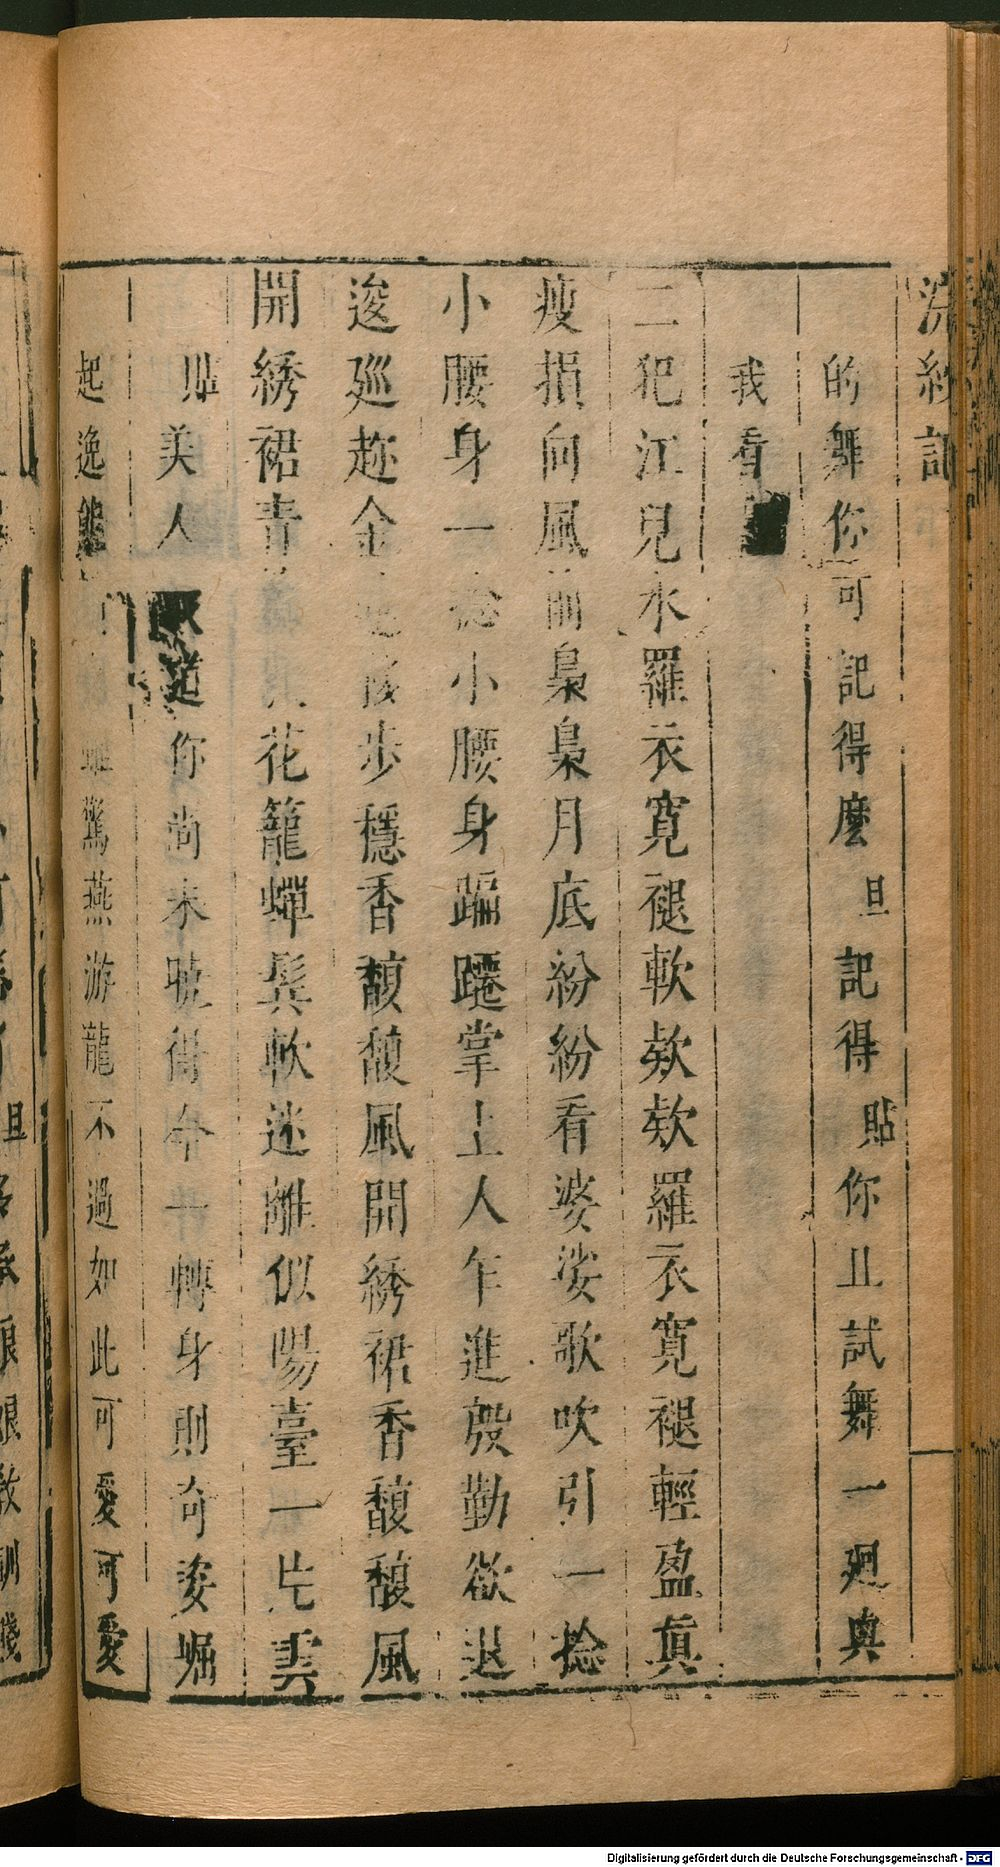 浣紗記
的舞你可記得麽旦記得貼你且試舞一廻與
我看
二犯江兒水羅衣寬褪軟欸欸羅衣寬褪輕盈真
瘦損向風前裊裊月底紛紛看婆娑歌吹引一捻
小腰身一捻小腰身蹁躚掌上人乍進殷勤欲退
逡廵趂金蓮移步穩香馥馥風開綉裙香馥馥風
開綉裙青 花籠蟬鬂軟迷離似陽臺一片雲
貼美人 道你尚未曉得今廿轉身則奇姿崛
起逸態 驚燕游龍不過如此可愛可愛
Digitalisierung gefördert durch die Deutsche Forschungsgemeinschaft - DFG